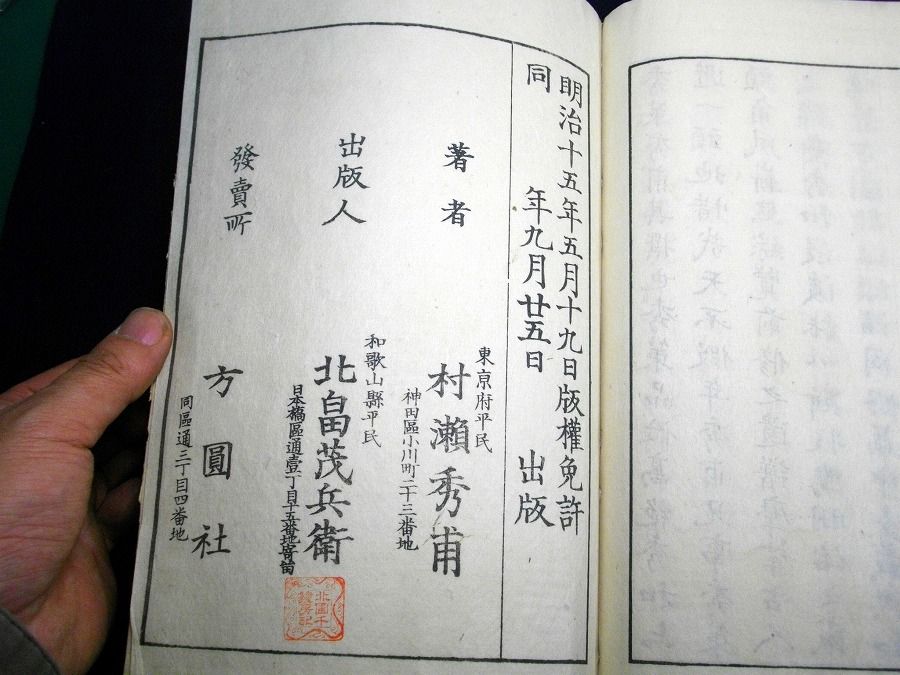 明治十五年五月十九日版權免許
同　年九月廿五日　出版
著者
東京府平民
村瀨秀甫
神田區小川町二十三番地
出版人
和歌山縣平民
北畠茂兵衞
日本橋區通壹丁目十五番地寄留
發賣所
方圓社
同區通三丁目四番地